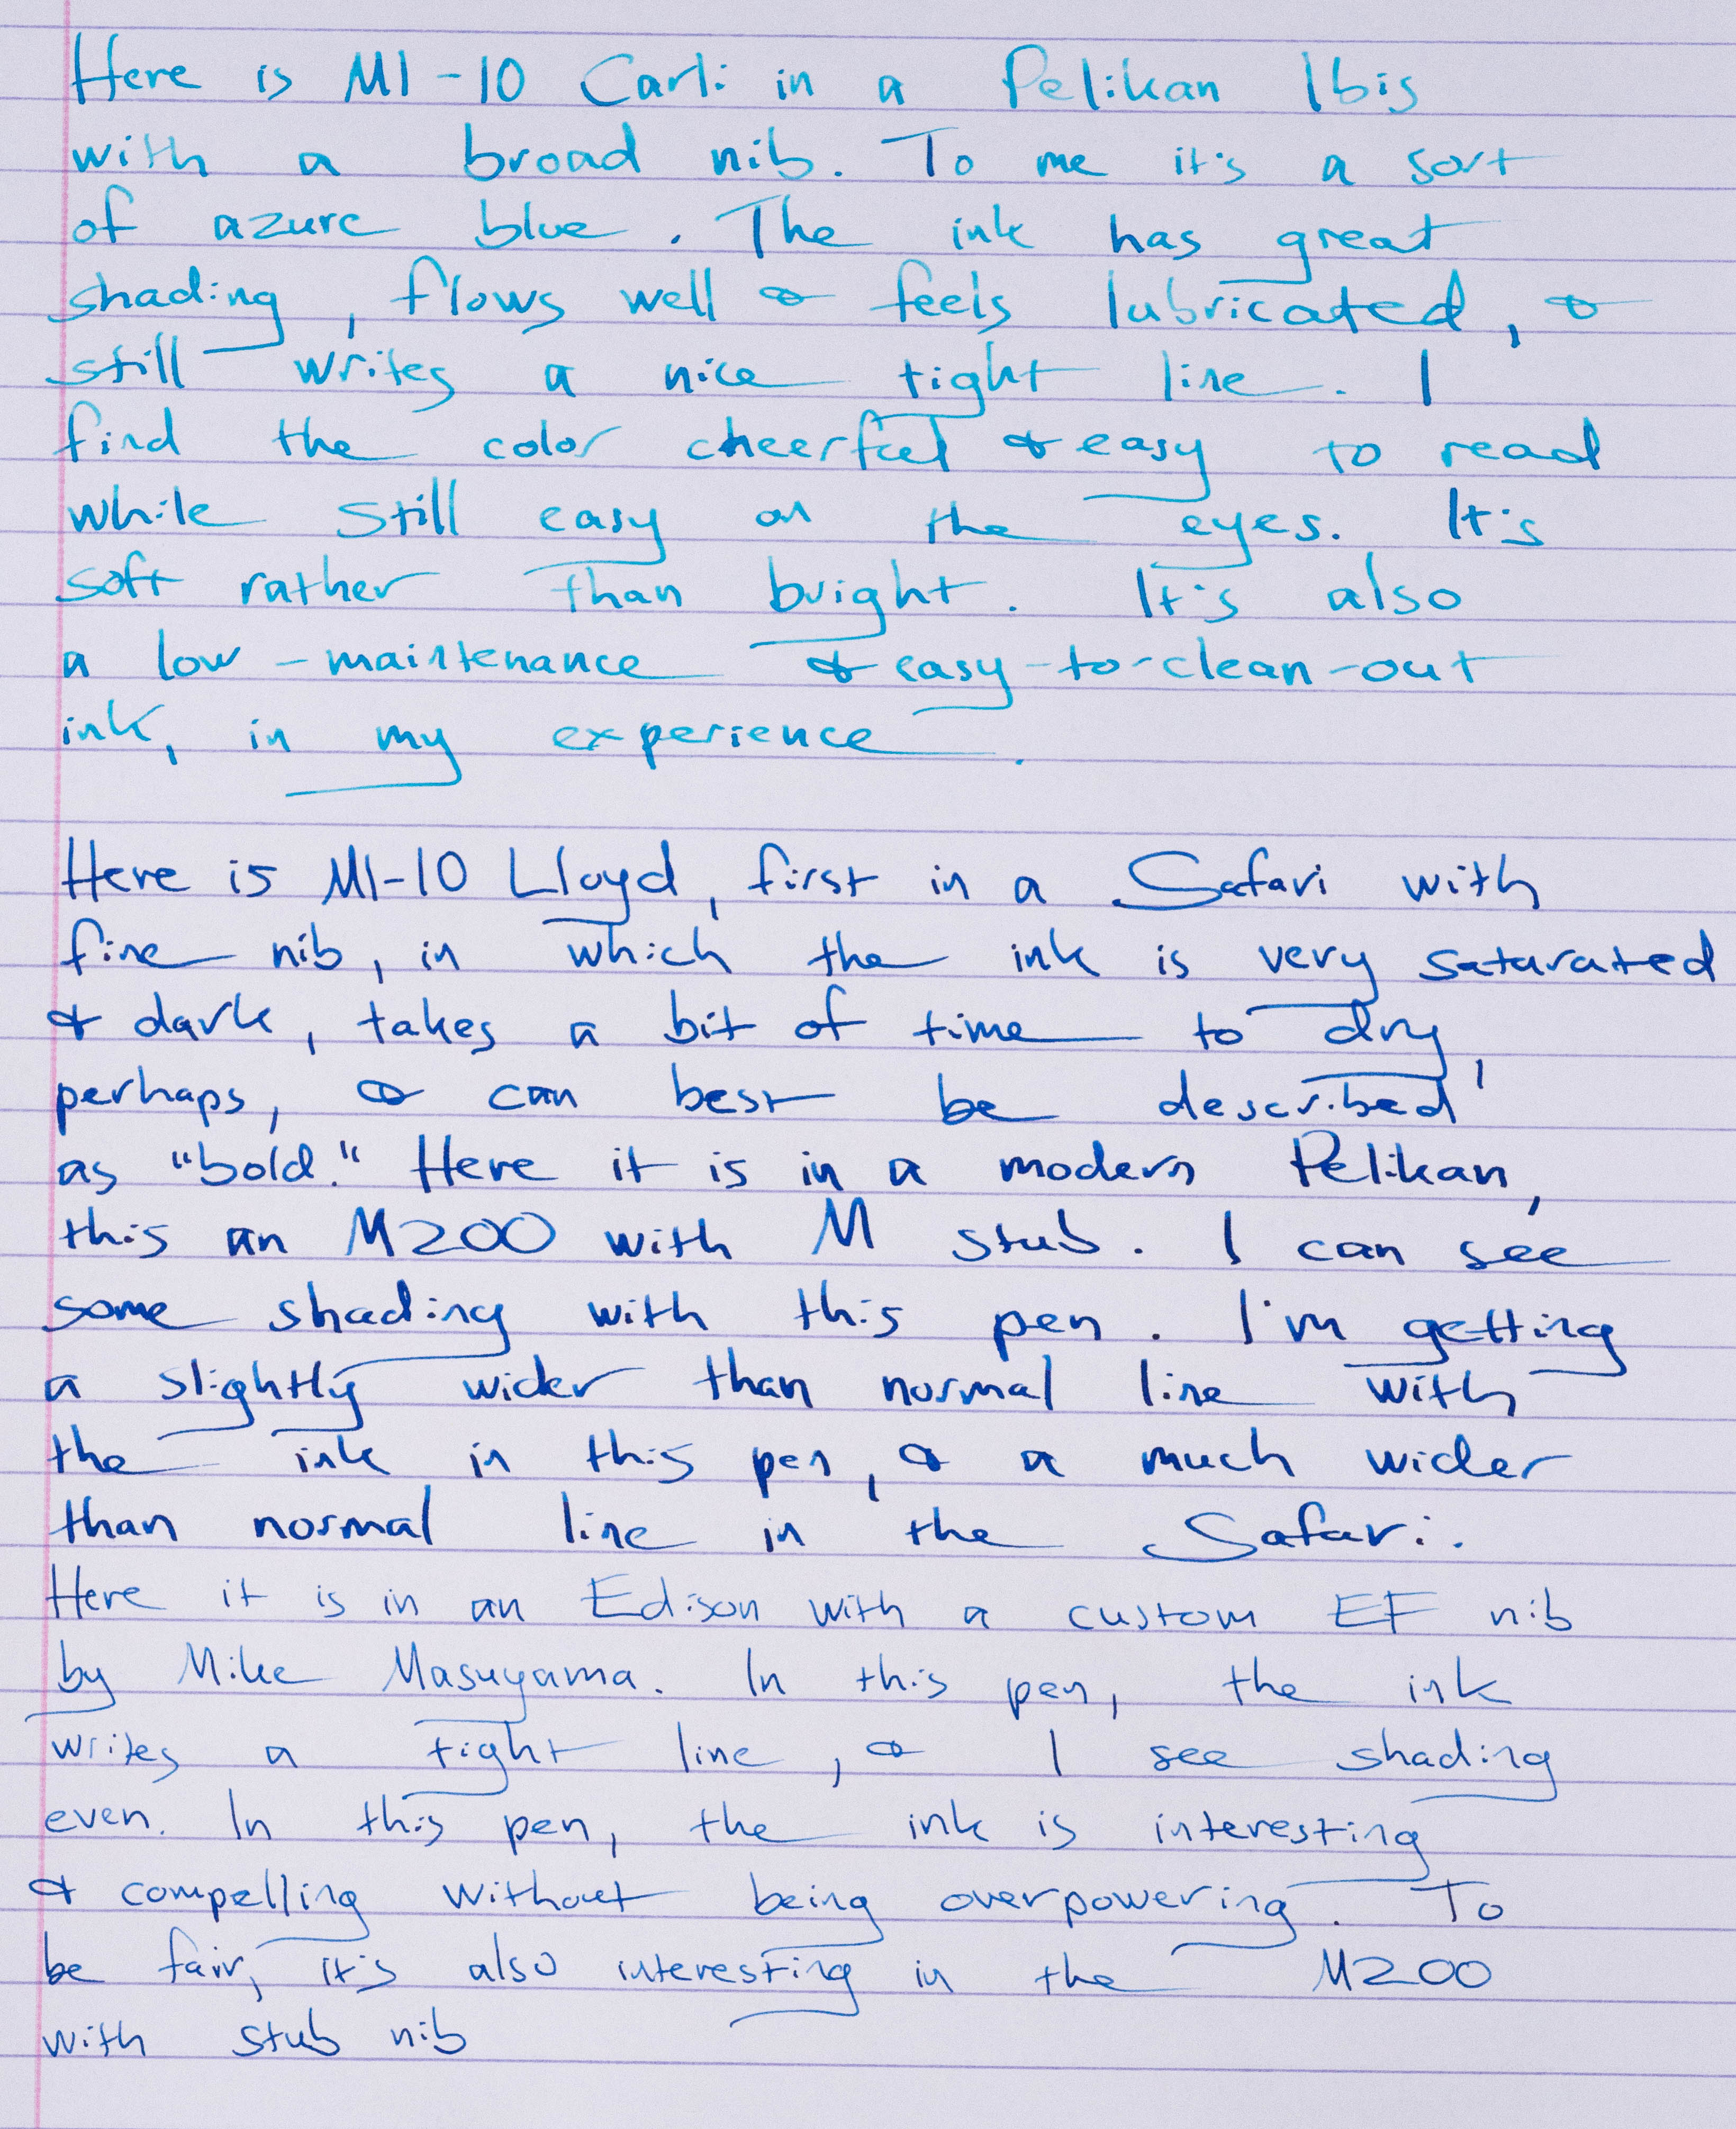 Here is MI-10 Carli in a Pelikan Ibis
with a broad nib. To me it's a sort
of azure blue. The ink has great
shading, flows well & feels lubricated, &
still writes a nice tight line. I
find the color cheerful & easy to read
while still easy on the eyes. It's
soft rather than bright. It's also
a low-maintenance & easy-to-clean-out
ink, in my experience.
Here is MI-10 Lloyd, first in a Safari with
fine nib, in which the ink is very saturated
& dark, takes a bit of time to dry,
perhaps, & can best be described
as "bold." Here it is in a modern Pelikan,
this an M200 with M stub. I can see
some shading with this pen. I'm getting
a slightly wider than normal line with
the ink in this pen, & a much wider
than normal line in the Safari.
Here it is in an Edison with a custom EF nib
by Mike Masuyama. In this pen, the ink
writes a tight line, & I see shading
even. In this pen, the ink is interesting
& compelling without being overpowering. To
be fair, it's also interesting in the M200
with stub nib